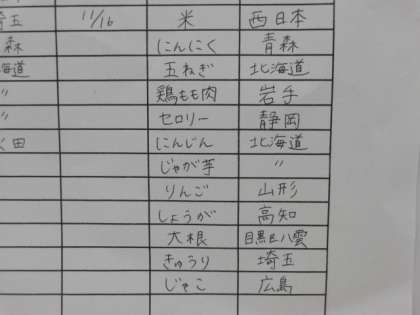 埼玉 11/16 米 西日本
青森 にんにく 青森
北海道 玉ねぎ 北海道
〃 鶏もも肉 岩手
〃 セロリー 静岡
田 にんじん 北海道
じゃが芋 〃
りんご 山形
しょうが 高知
大根 目黒区八雲
きゅうり 埼玉
じゃこ 広島